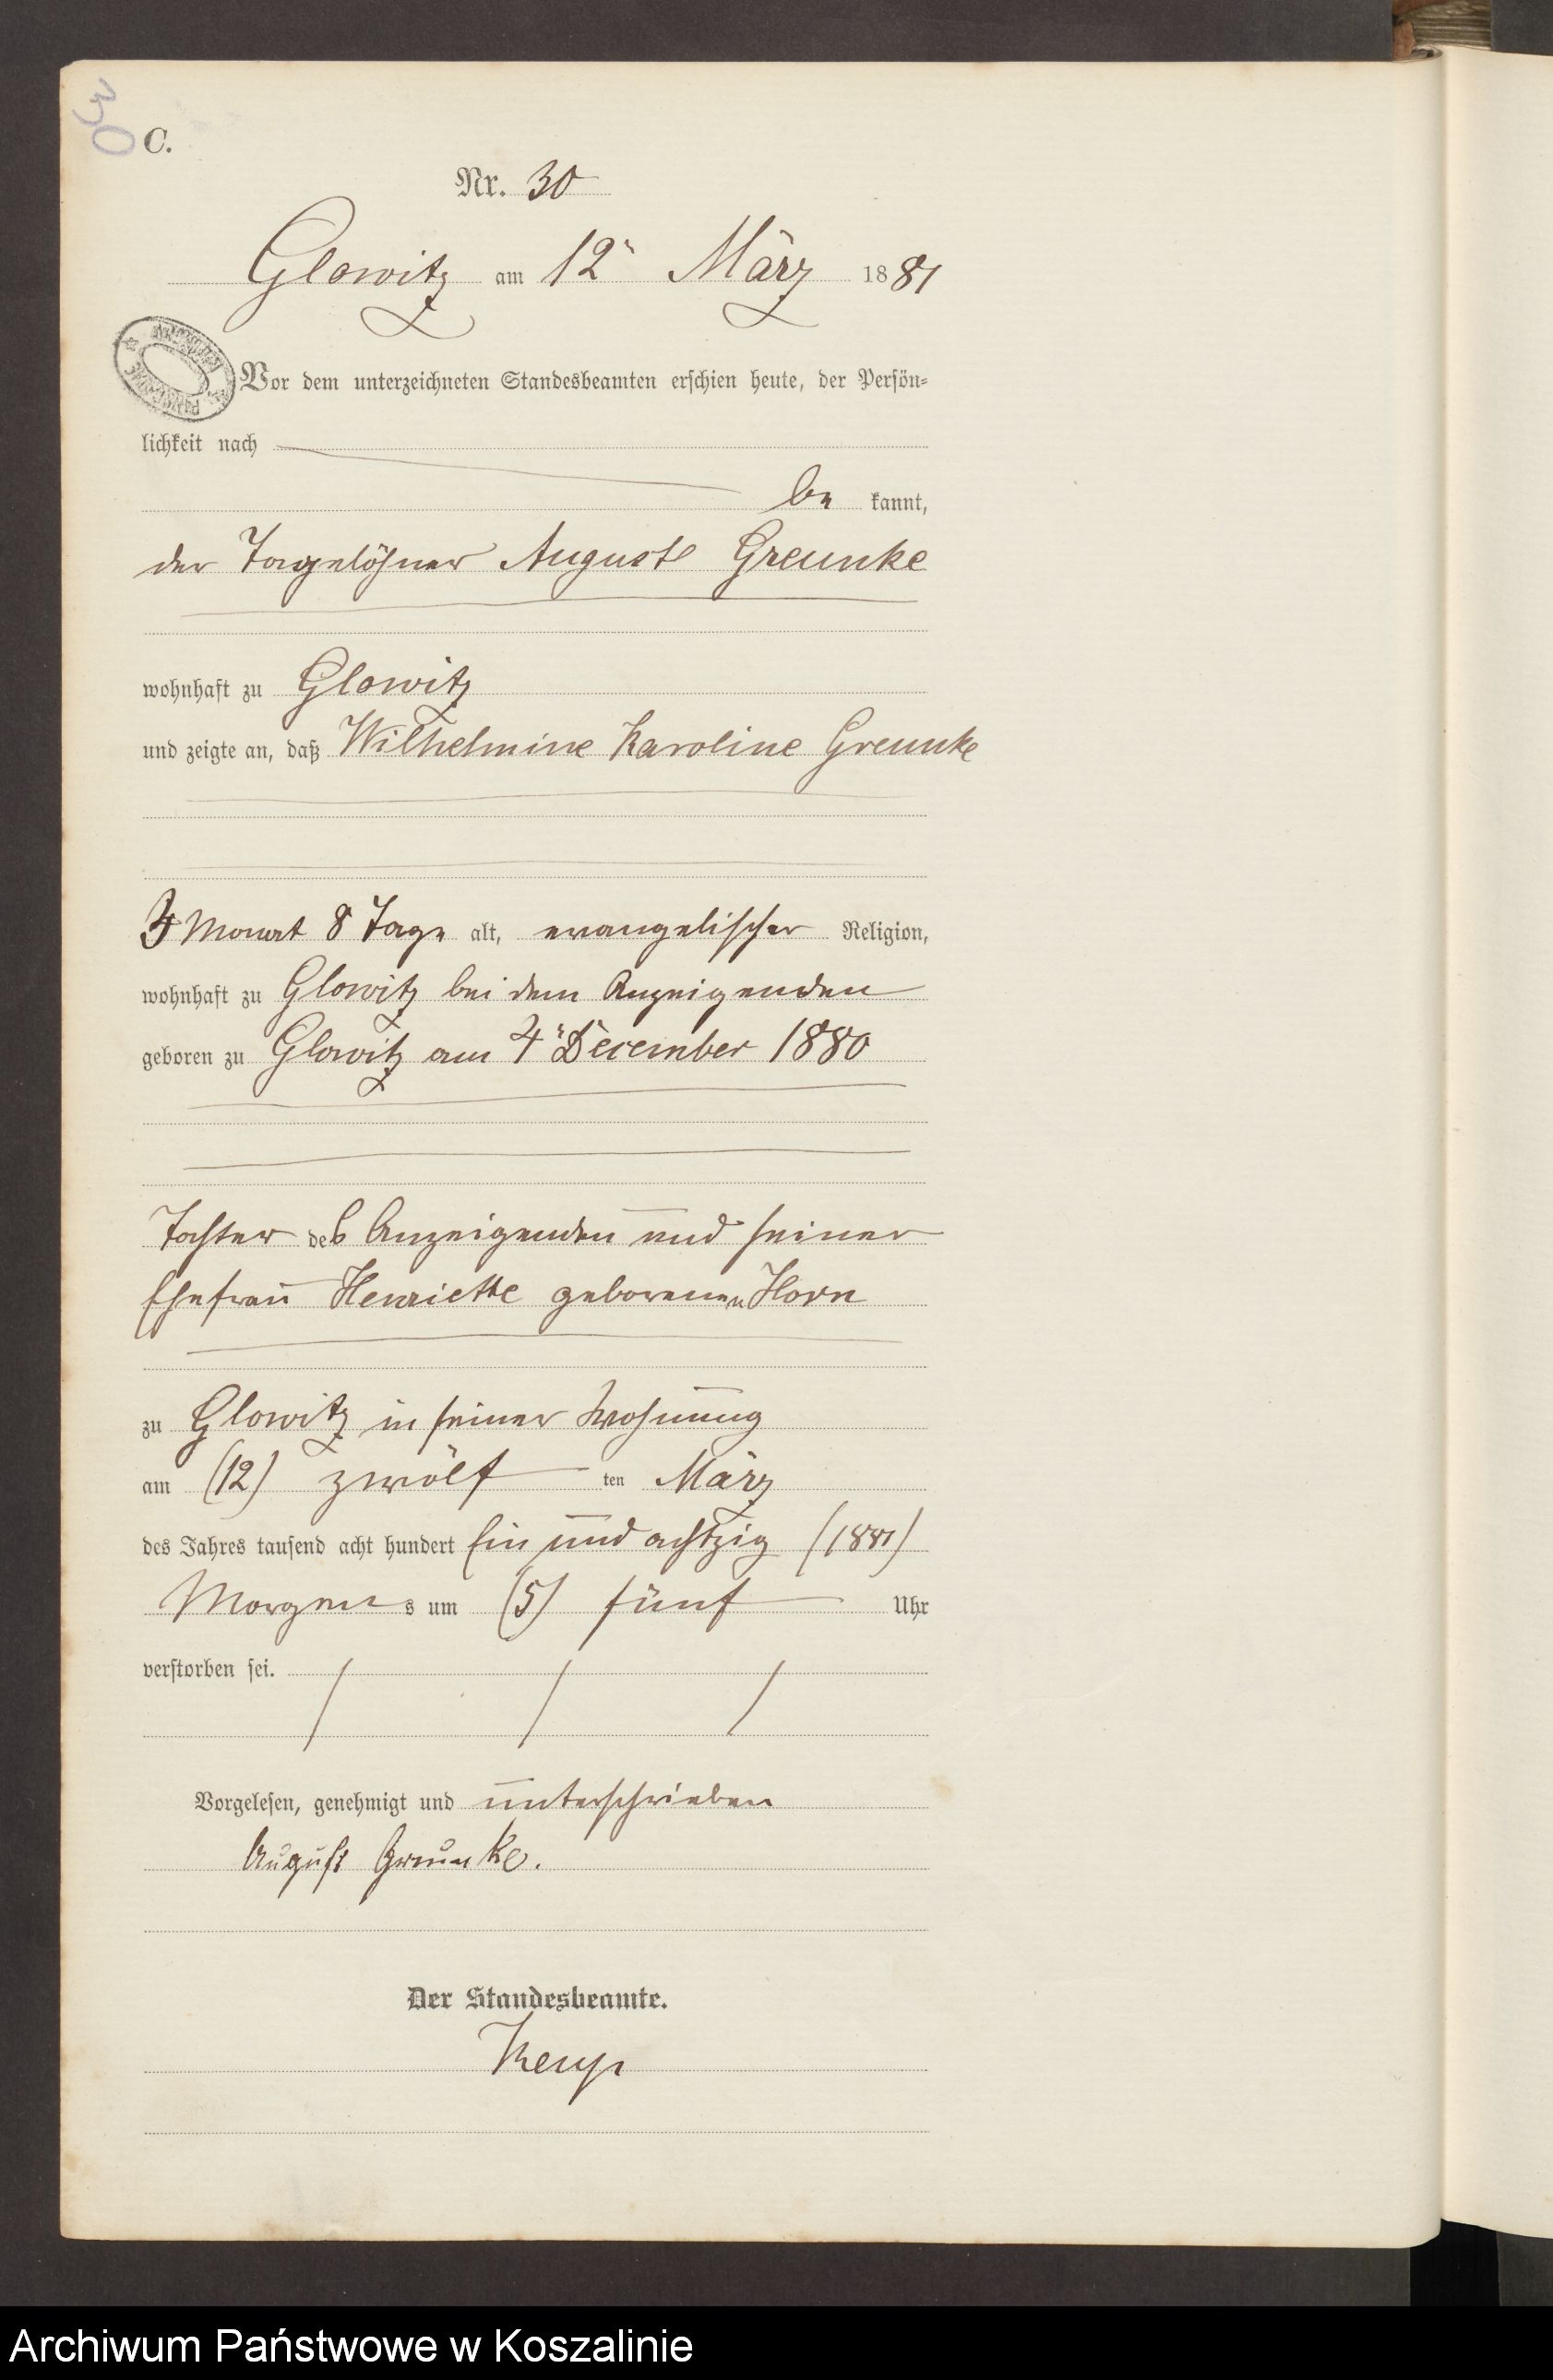 30
C.
Nr. 30
Glowitz am 12" März 1881
Vor dem unterzeichneten Standesbeamten erschien heute, der Persön-
lichkeit nach
be kannt,
der Tagelöhner August Greunke
wohnhaft zu Glowitz
und zeigte an, daß Wilhelmine Karoline Greunke
3 Monat 8 Tage alt, evangelischer Religion,
wohnhaft zu Glowitz bei dem Anzeigenden
geboren zu Glowitz am 4" December 1880
Tochter des Anzeigenden und seiner
Ehefrau Henriette geborenen Horn
zu Glowitz in seiner Wohnung
am (12) zwölf ten März
des Jahres tausend acht hundert Ein und achtzig (1881)
Morgens um (5) fünf Uhr
verstorben sei.
Vorgelesen, genehmigt und unterschrieben
August Greunke.
Der Standesbeamte.
Archiwum Państwowe w Koszalinie